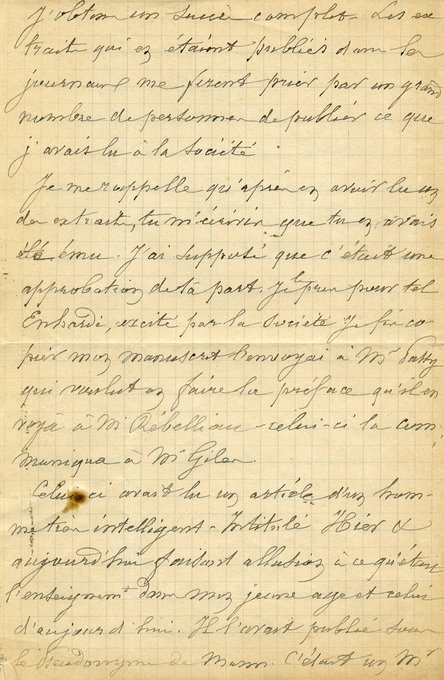 J'obtins un succès complet. Les ex
traits qui en étaient publiés dans les
journaux me firent prier par un grand
nombre de personnes de publier ce que
j'avais lu à la société
Je me rappelle qu'après en avoir lu un
des extraits, tu m'écrivis que tu en avais
été ému. J'ai supposé que c'était une
approbation de ta part. Je le pris pour tel
Enhardi, excité par la société je fis co
pier mon manuscrit l'envoyai à Mr
qui voulut en faire la préface qu'il en
voya à Mr Rébelliau - celui-ci la com
muniqua à Mr
Celui ci avait lu un article d'un hom
me très intelligent - Intitulé Hier &
aujourd'hui faisant allusion à ce qu'était
l'enseignemt dans mon jeune age et celui
d'aujourd'hui. Il l'avait publié sous
le pseudonyme de C'était un Mr